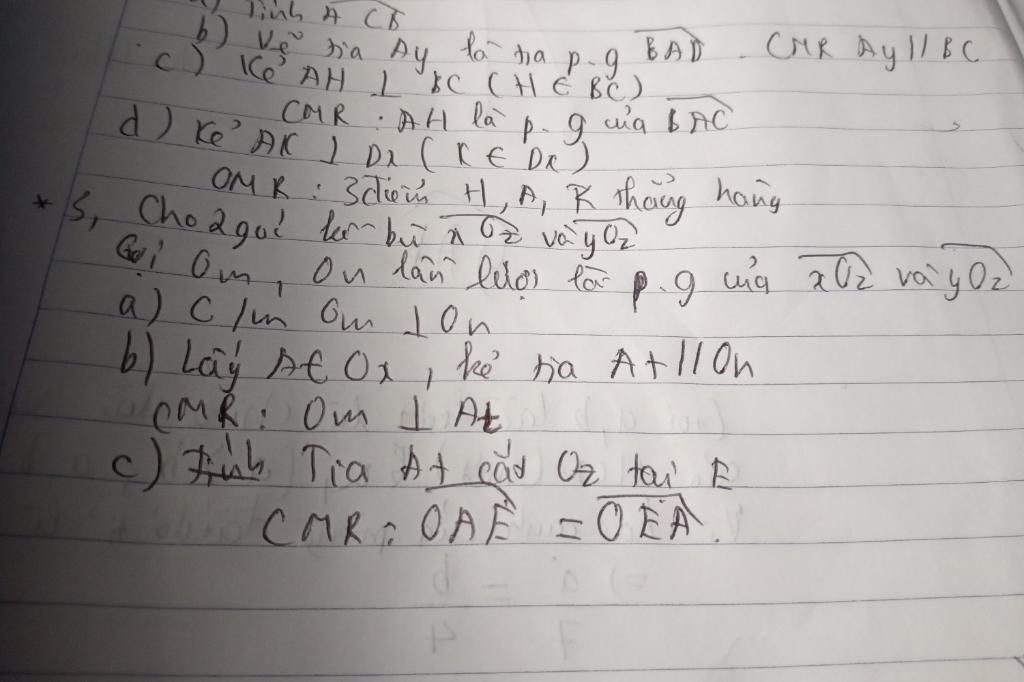 a) Tính ACB
b) Vẽ tia Ay là tia p.g BAD. CMR Ay // BC
c) Kẻ AH ⊥ BC (H ∈ BC)
CMR: AH là p.g của BAC
d) Kẻ AK ⊥ Dx (K ∈ Dx)
CMR: 3 điểm H, A, K thẳng hàng
* 5, Cho 2 góc kề bù xOz và yOz
Gọi Om, On lần lượt là p.g của xOz và yOz
a) C/m Om ⊥ On
b) Lấy A ∈ Ox, kẻ tia At // On
CMR: Om ⊥ At
c) Tính Tia At cắt Oz tại E
CMR: OAE = OEA.